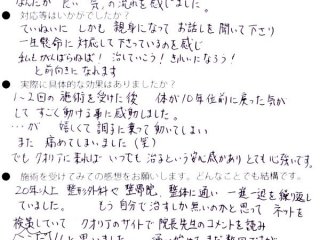 なんだか良い気の流れを感じました。
● 対応等はいかがでしたか？
ていねいに しかも 親身になって お話しを聞いて下さり
一生懸命に対応して下さっているのを感じ
私もがんばらねば！治していこう！きれいになろう！
と前向きになれます
● 実際に具体的な効果はありましたか？
1〜2回の施術を受けた後 体が10年位前に戻った気が
して すごく動ける事に感動しました。
…が 嬉しくて調子に乗って動いてしまい
また 痛めてしまいました（笑）
でも クオリアに来れば いつでも治るという安心感があり とても心強いです。
● 施術を受けてみての感想をお願いします。どんなことでも結構です。
20年以上 整形外科や整骨院、整体に通い 一進一退を繰り返し
ていました。 もう自分で治すしか無いのかと思って ネットを
検索していて クオリアのサイトで院長先生のコメントを読み
と思いました